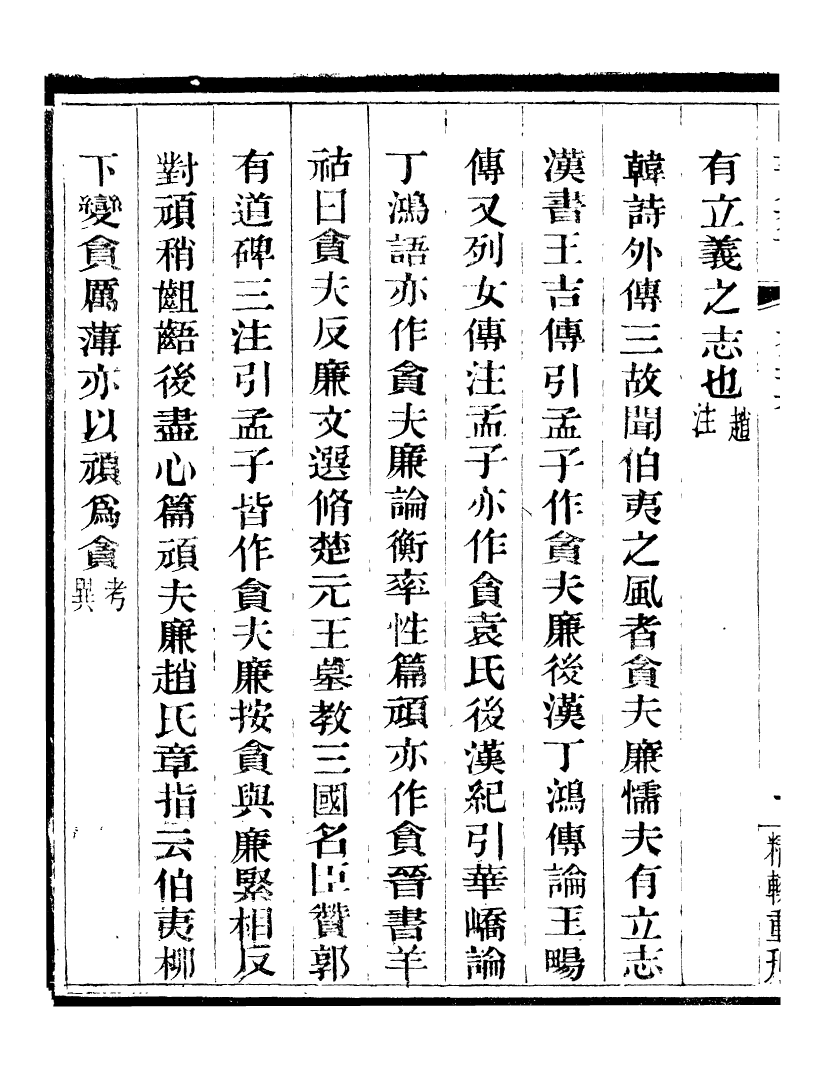 有立義之志也趙注
韓詩外傳三故聞伯夷之風者貪夫廉懦夫有立志
漢書王吉傳引孟子作貪夫廉後漢丁鴻傳論王暢
傳又列女傳注孟子亦作貪袁氏後漢紀引華嶠論
丁鴻語亦作貪夫廉論衡率性篇頑亦作貪晉書羊
祜曰貪夫反廉文選脩楚元王墓教三國名臣贊郭
有道碑三注引孟子皆作貪夫廉按貪與廉緊相反
對頑稍齟齬後盡心篇頑夫廉趙氏章指云伯夷柳
下變貪厲薄亦以頑爲貪考異